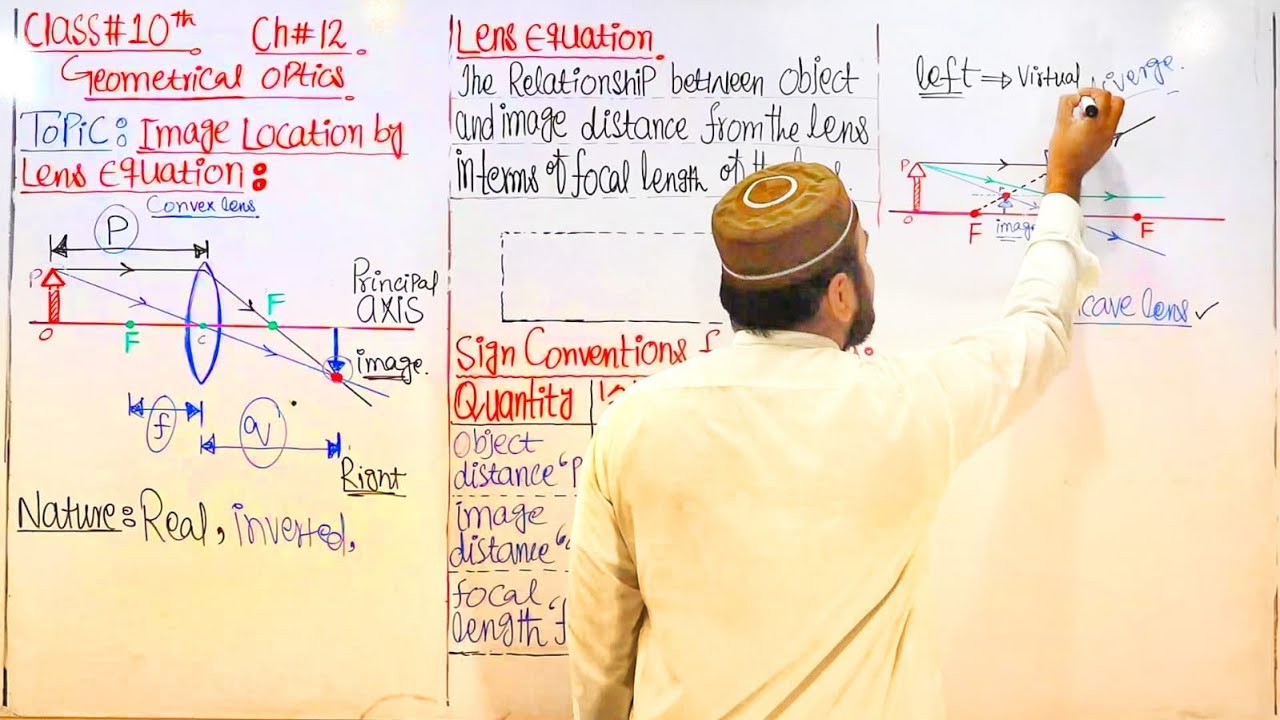 Class#10th Ch#12.
Geometrical optics
ToPiC: Image Location by
Lens Equation:
Convex lens
P
P
Principal
axis
F
F
C
O
image.
f
q
Right
Nature: Real, inverted.
Lens Equation.
The Relationship between object
and image distance from the lens
in terms of focal length of
Sign Conventions
Quantity
object
distance "P
image
distance "
focal
length "f
left ⇒ Virtual
P
O
F
image
F
cave lens ✓